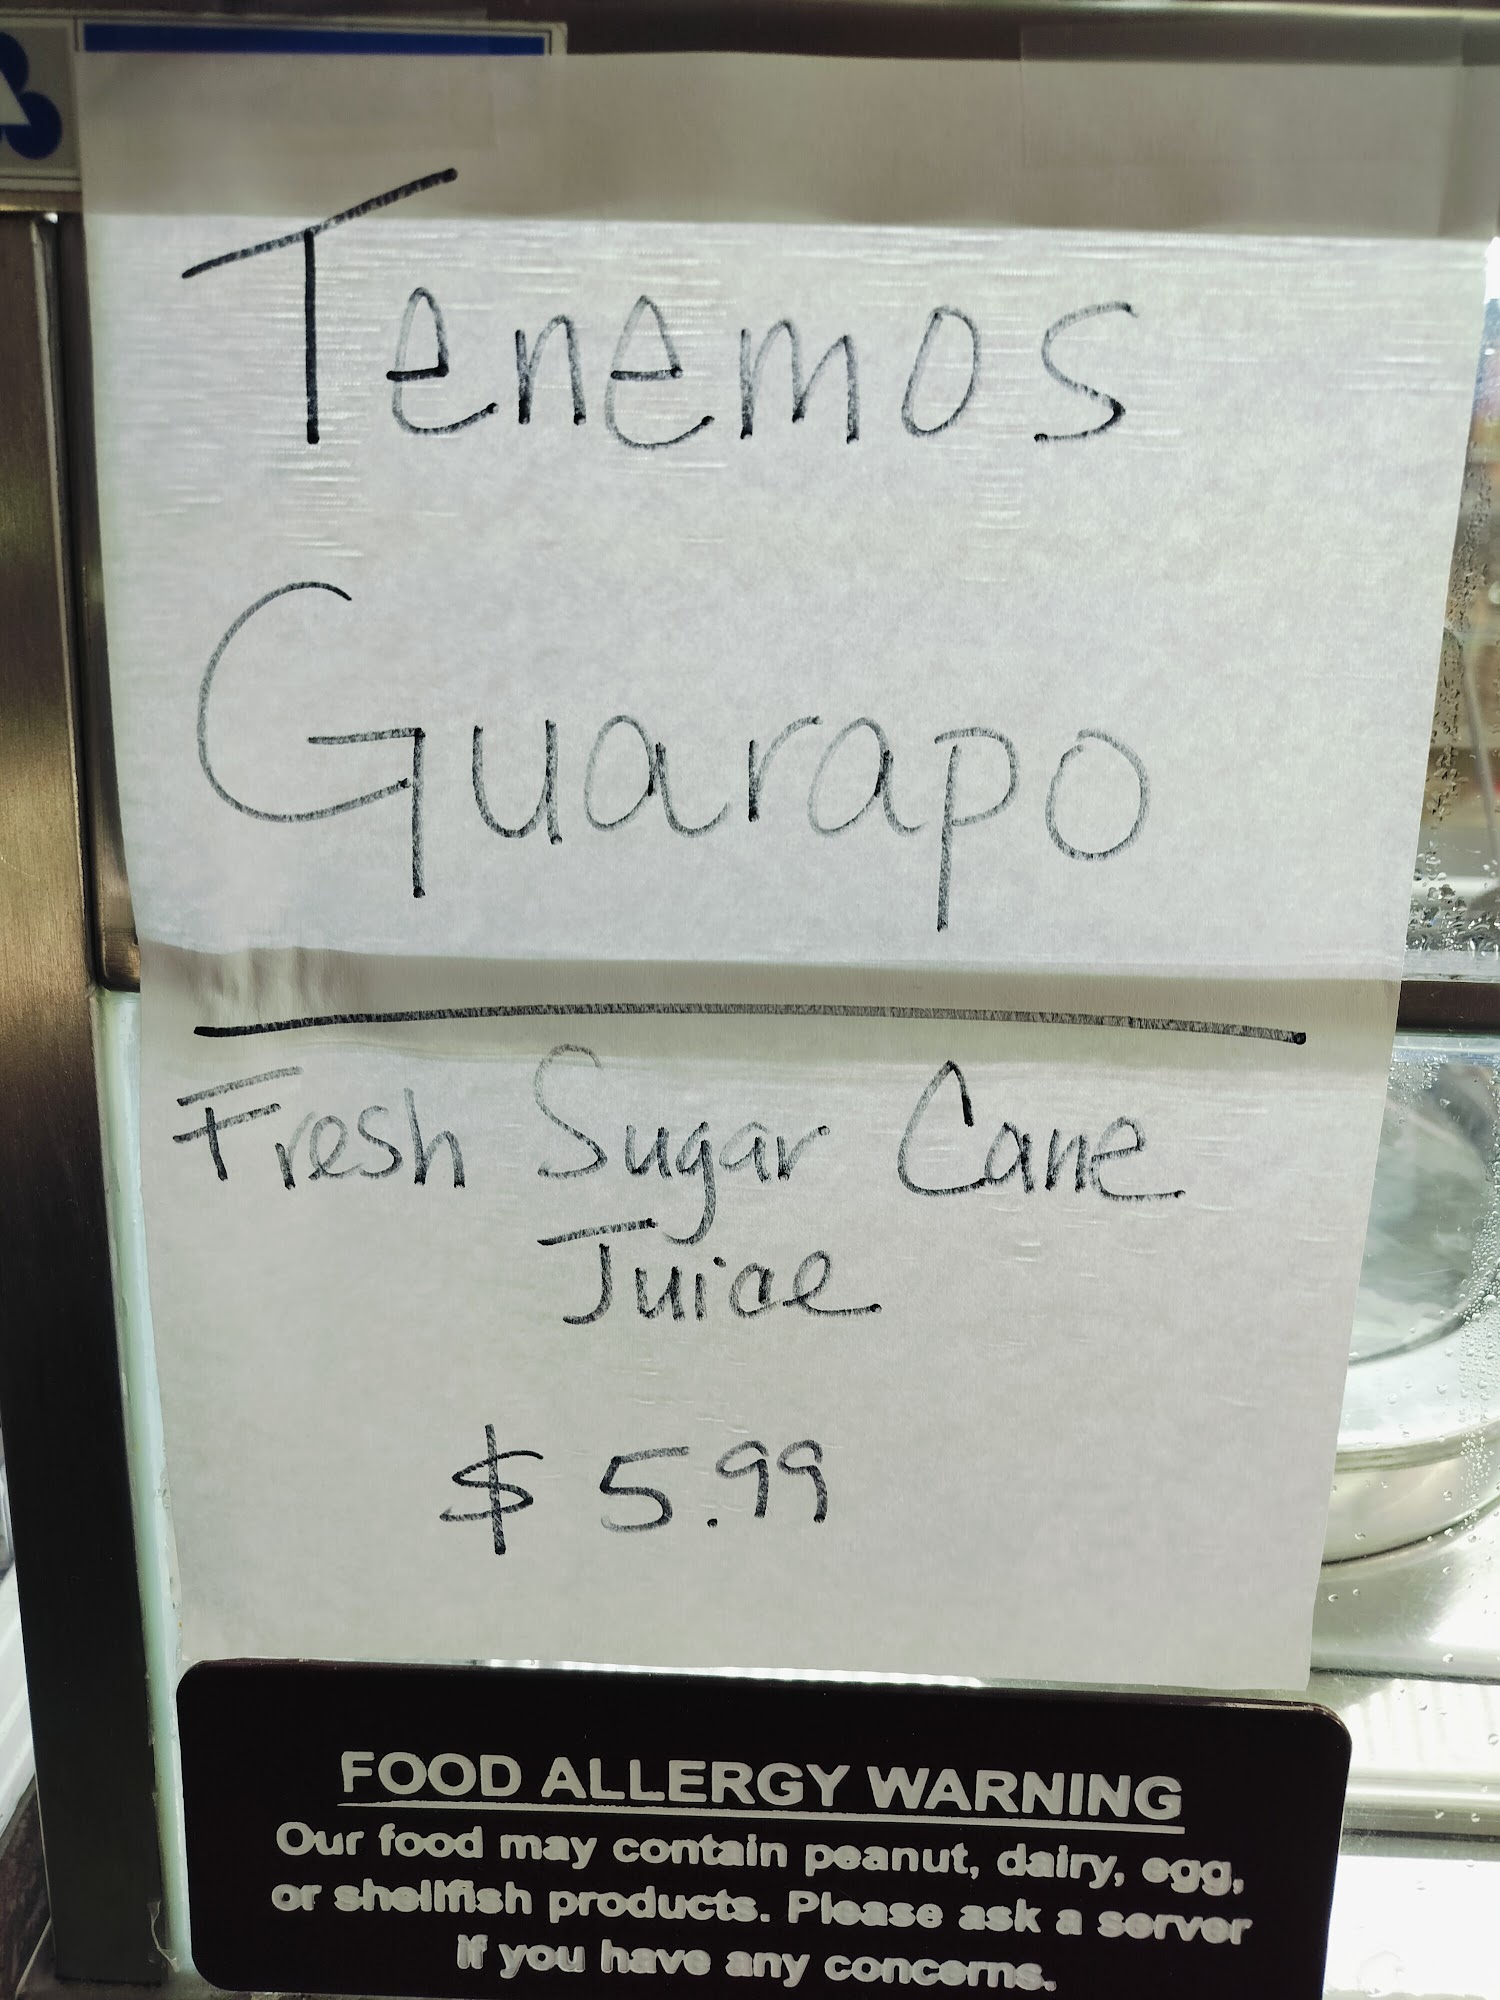 Tenemos
Guarapo
Fresh Sugar Cane
Juice
$ 5.99
FOOD ALLERGY WARNING
Our food may contain peanut, dairy, egg,
or shellfish products. Please ask a server
if you have any concerns.